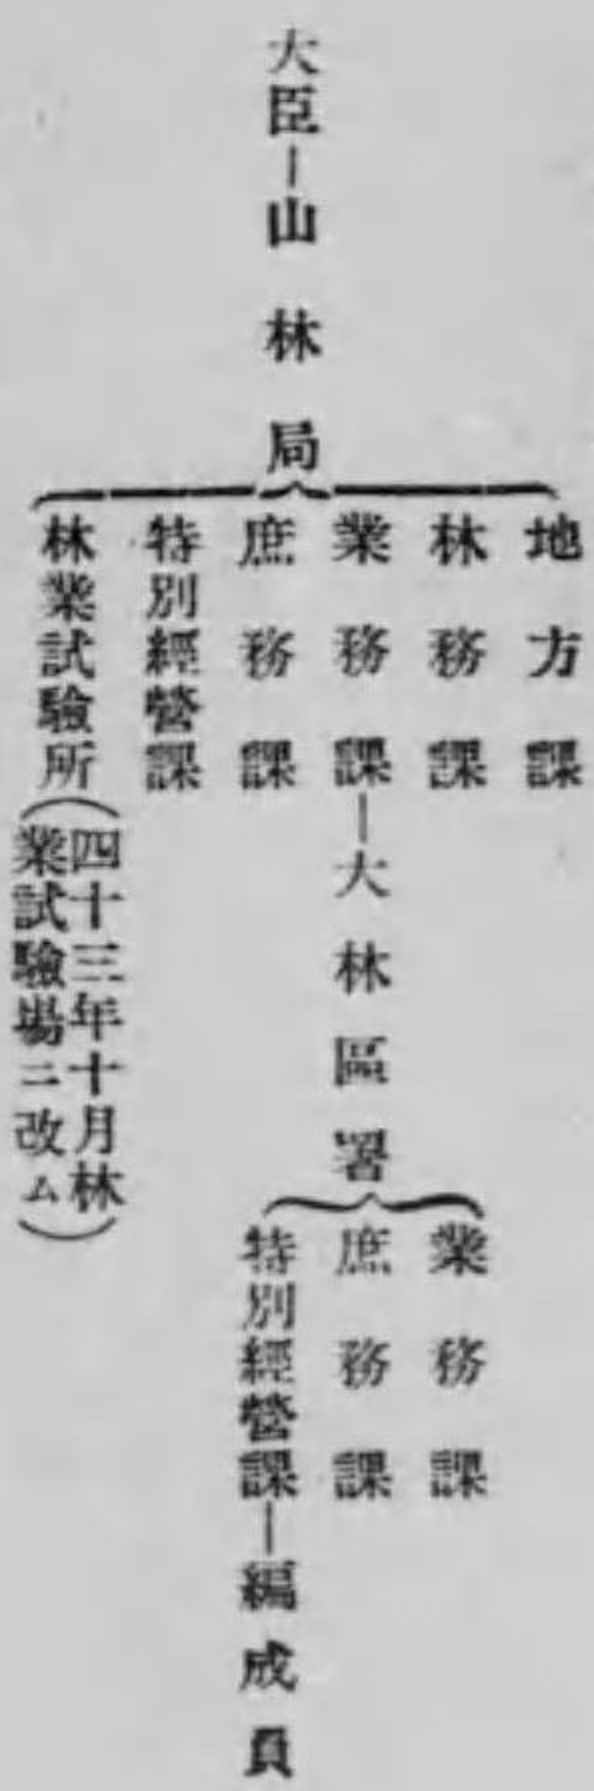 大臣―山林局
地方課
林務課
業務課―大林區署
業務課
庶務課
特別經營課―編成員
庶務課
特別經營課
林業試驗所(四十三年十月林
業試驗場ニ改ム)